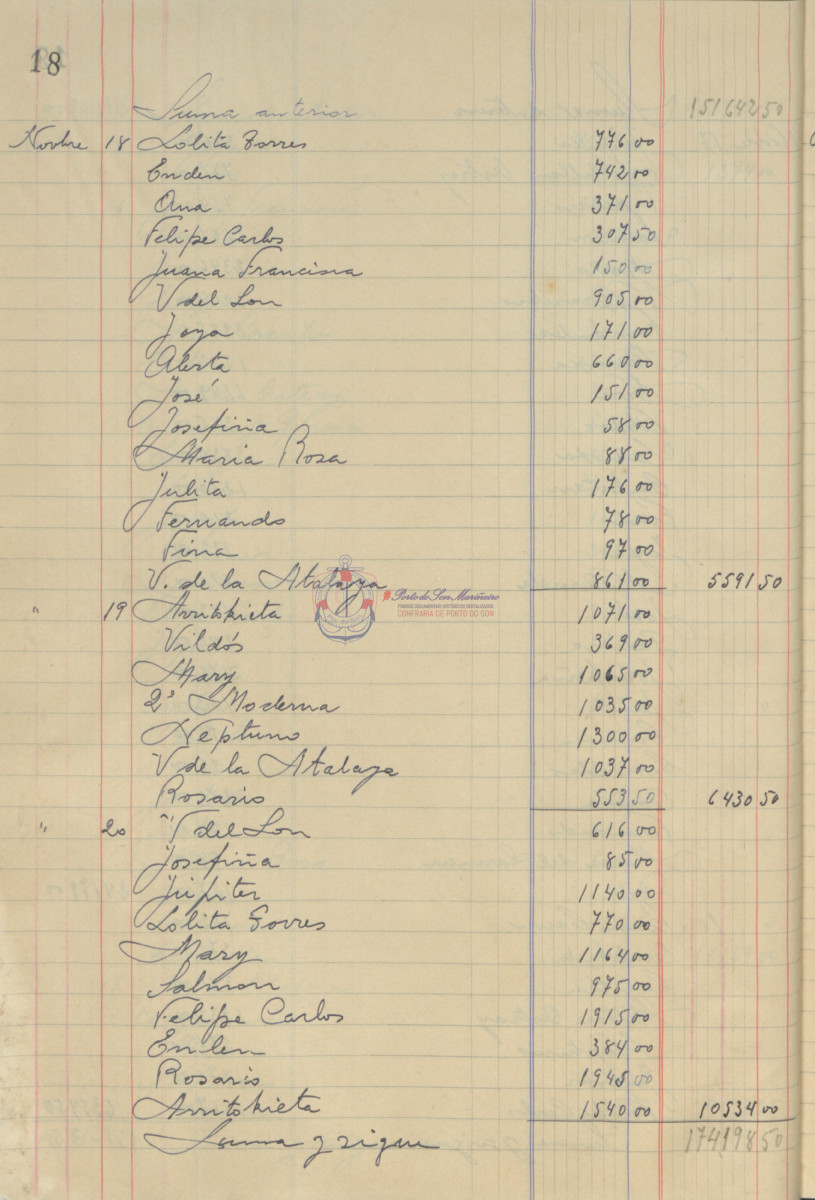 18
Suma anterior 15164250
Novbre 18 Lolita Torres 776 00
Enden 742 00
Ana 371 00
Felipe Carlos 307 50
Juana Francisca 150 00
V del Son 905 00
Joya 171 00
Alerta 660 00
José 151 00
Josefiña 58 00
Maria Rosa 88 00
Julita 176 00
Fernando 78 00
Fina 97 00
V. de la Atalaya 861 00 5591 50
Porto do Son Mariñeiro
FONDOS DOCUMENTAIS HISTÓRICOS DIXITALIZADOS
CONFRARÍA DE PORTO DO SON
" 19 Arritokieta 1071 00
Vildós 369 00
Mary 1065 00
2ª Moderna 1035 00
Neptuno 1300 00
V de la Atalaya 1037 00
Rosario 553 50 6430 50
" 20 V del Son 616 00
Josefiña 85 00
Júpiter 1140 00
Lolita Torres 770 00
Mary 1164 00
Salmon 975 00
Felipe Carlos 1915 00
Enden 384 00
Rosario 1945 00
Arritokieta 1540 00 10534 00
Suma y sigue 174198 50